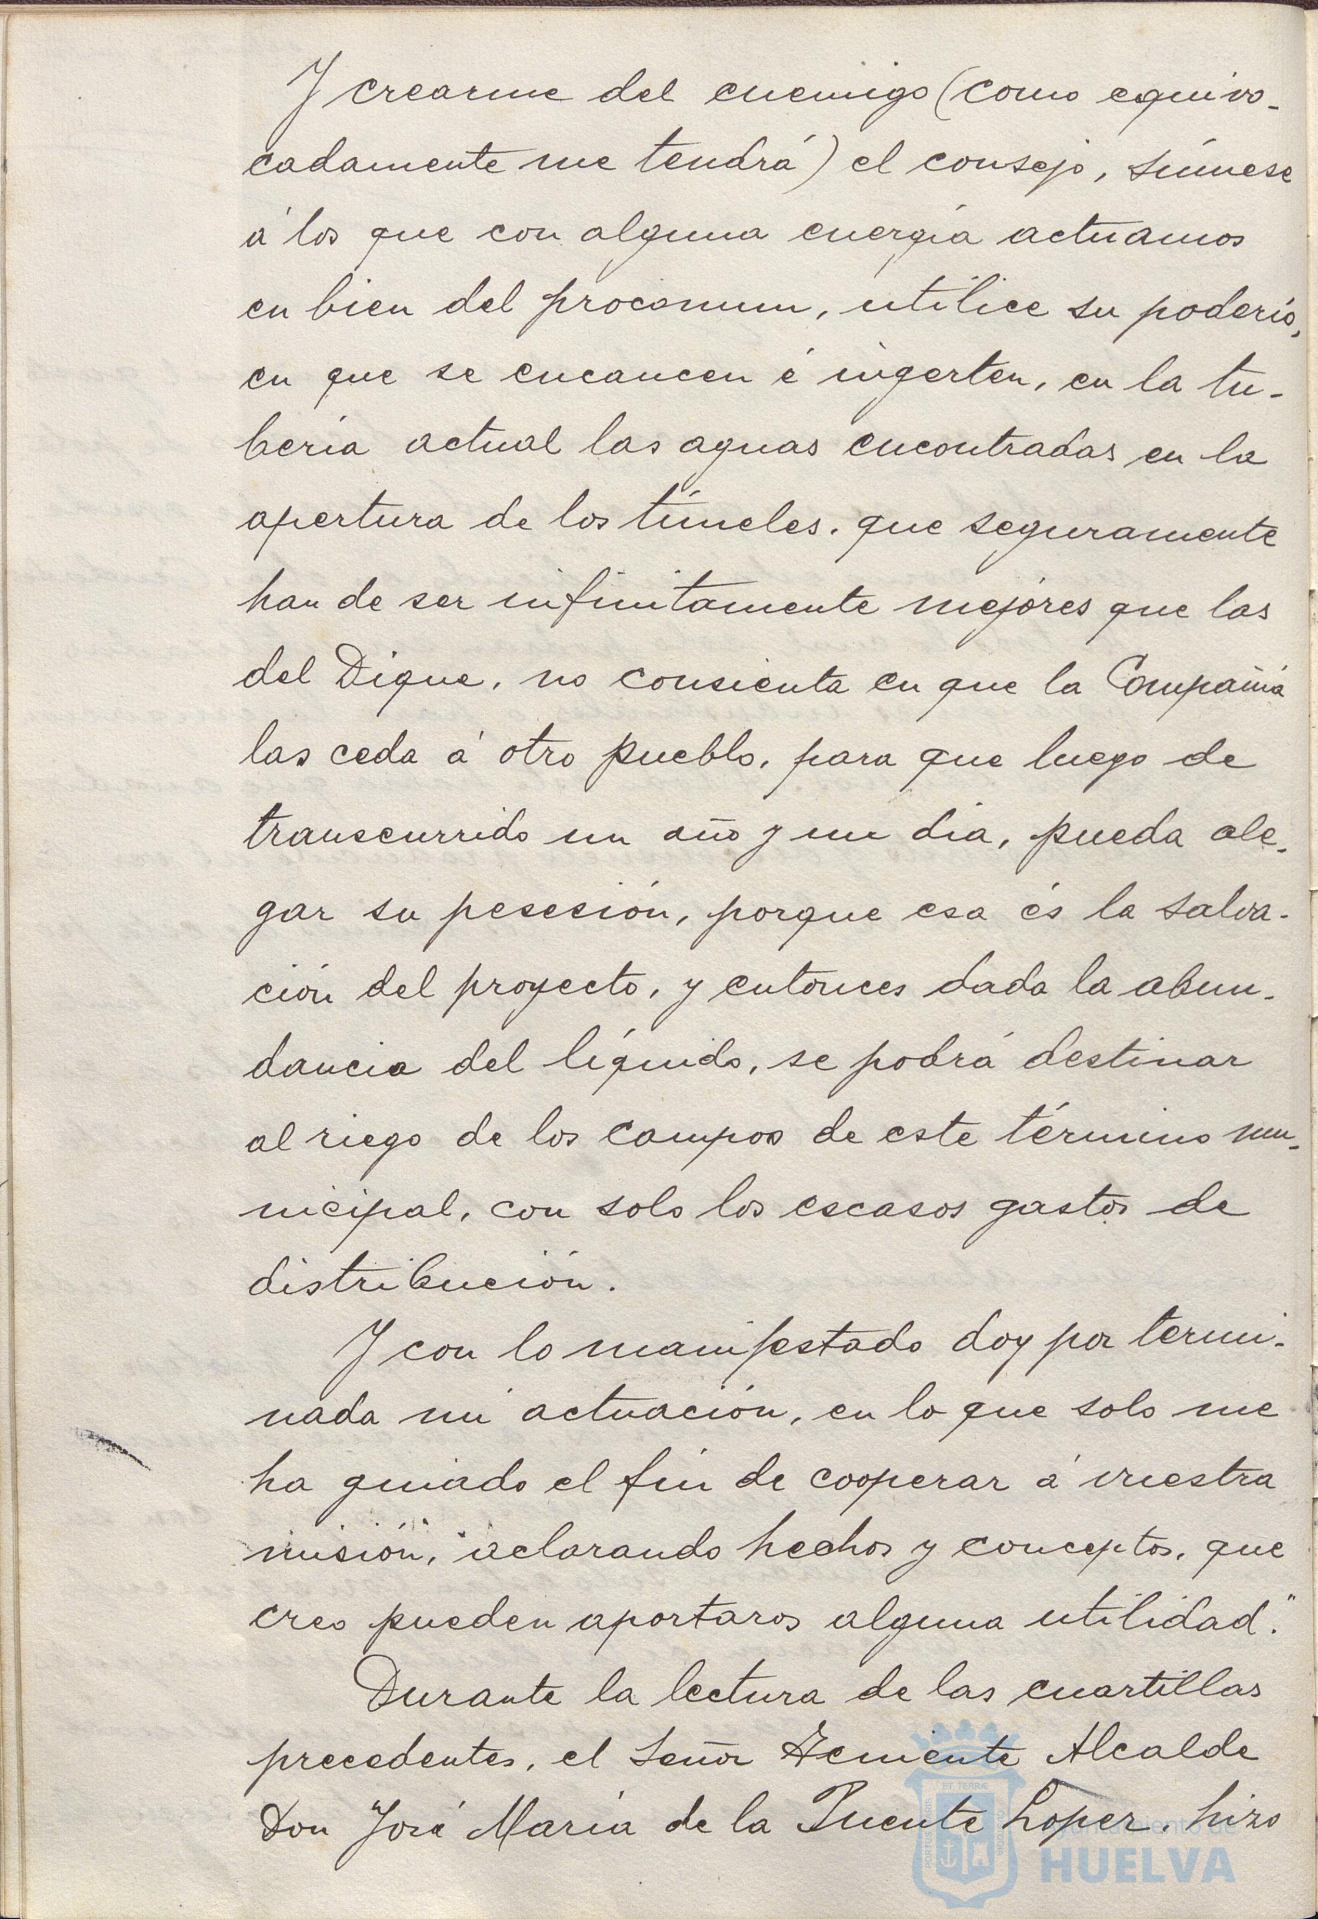 Y crearme del enemigo (como equivo-
cadamente me tendrá) el consejo, súmese
á los que con alguna energía actuamos
en bien del procomun, utilice su poderío,
en que se encaucen é ingerten, en la tu-
bería actual las aguas encontradas en la
apertura de los túneles, que seguramente
han de ser infinitamente mejores que las
del Dique, no consienta en que la Compañía
las ceda á otro pueblo, para que luego de
transcurrido un año y un dia, pueda ale-
gar su pesesión, porque esa és la salva-
ción del proyecto, y entonces dada la abun-
dancia del líquido, se podrá destinar
al riego de los campos de este término mu-
nicipal, con solo los escasos gastos de
distribución.
Y con lo manifestado doy por termi-
nada mi actuación, en lo que solo me
ha guiado el fin de cooperar á vuestra
misión, aclarando hechos y conceptos, que
creo pueden aportaros alguna utilidad."
Durante la lectura de las cuartillas
precedentes, el Señor Teniente Alcalde
Don José María de la Puente Lopez, hizo
Ayuntamiento de
HUELVA